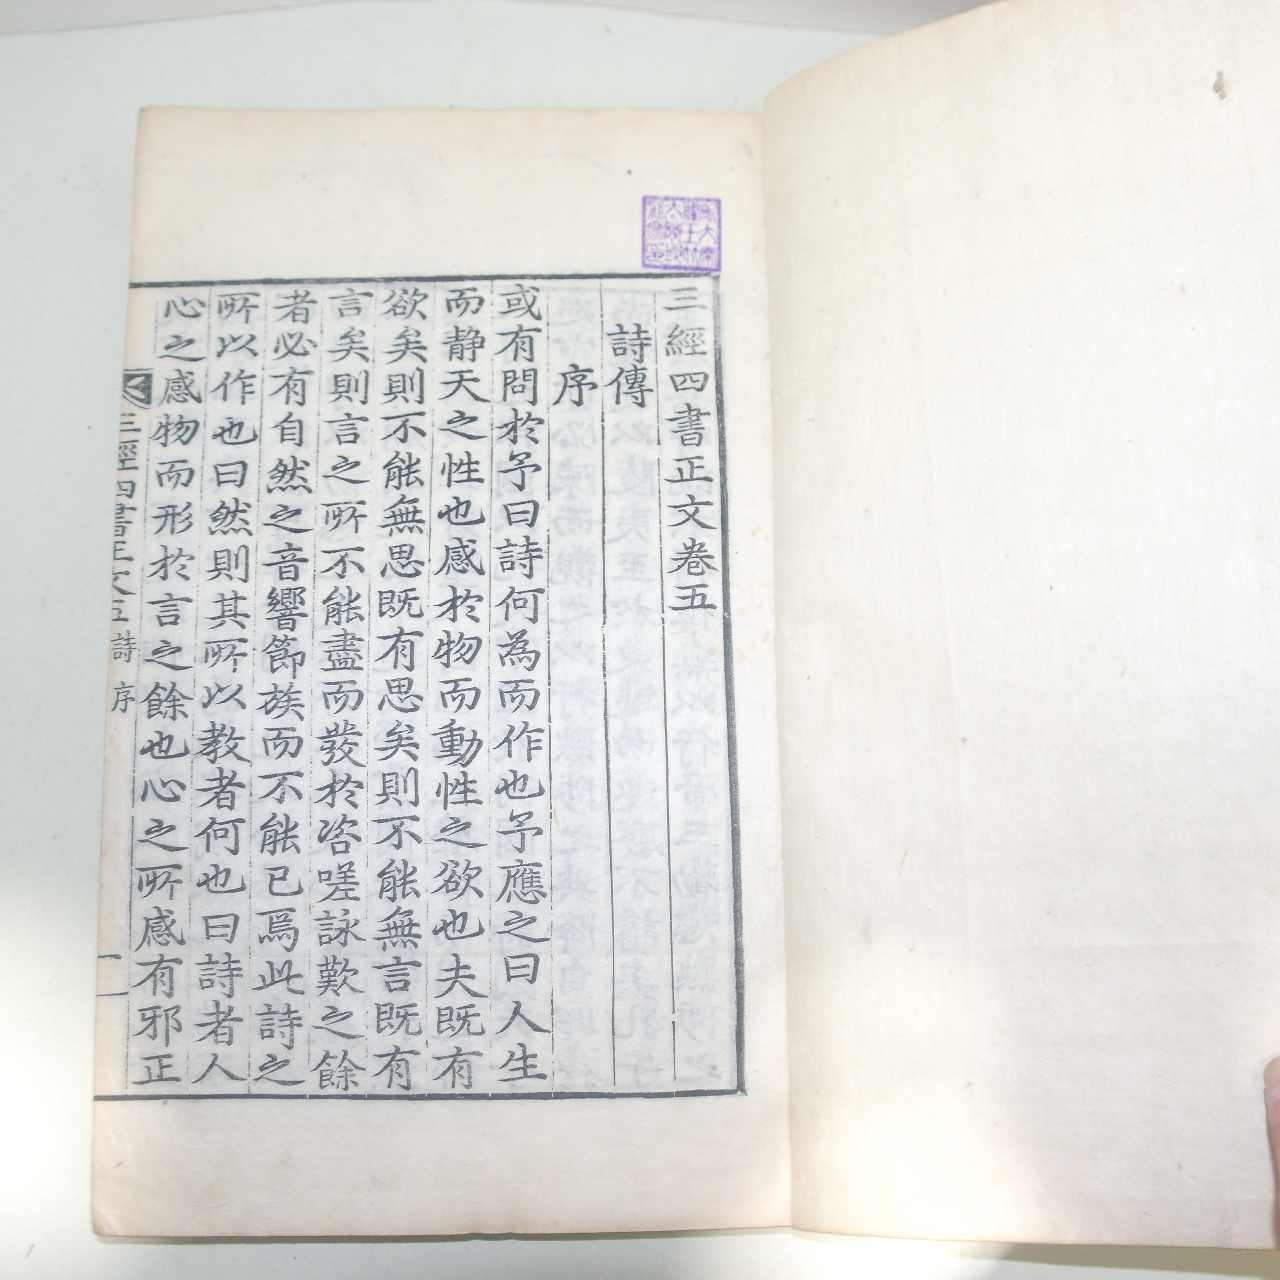 三經四書正文卷五
詩傳
序
或有問於予曰詩何為而作也予應之曰人生
而静天之性也感於物而動性之欲也夫既有
欲矣則不能無思既有思矣則不能無言既有
言矣則言之所不能盡而發於咨嗟詠歎之餘
者必有自然之音響節族而不能已焉此詩之
所以作也曰然則其所以教者何也曰詩者人
心之感物而形於言之餘也心之所感有邪正
三經四書正文五 詩序 一